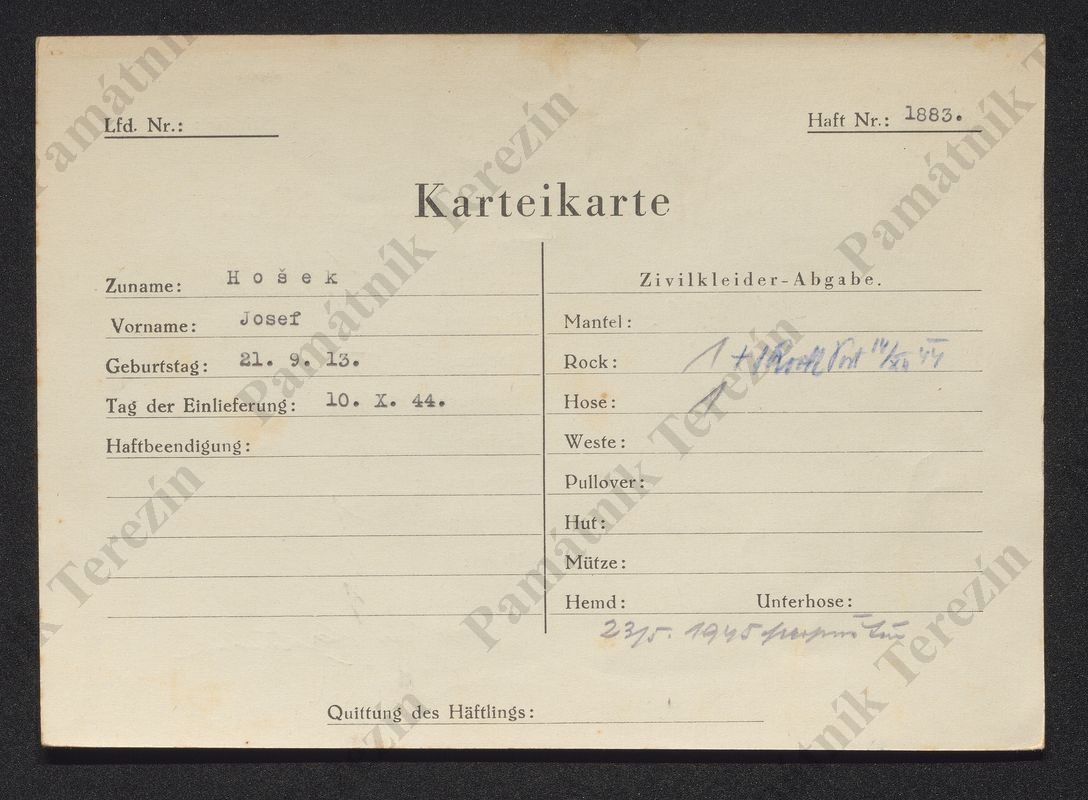 Lfd. Nr.:
Haft Nr.: 1883.
Karteikarte
Zuname: Hošek
Vorname: Josef
Geburtstag: 21. 9. 13.
Tag der Einlieferung: 10. X. 44.
Haftbeendigung:
Zivilkleider-Abgabe.
Mantel:
Rock: 1 + 1 Rock
Hose: 1
Weste:
Pullover:
Hut:
Mütze:
Hemd: Unterhose:
23/5. 1945
Quittung des Häftlings:
Památník Terezín
Památník Terezín
Památník Terezín
Památník Terezín